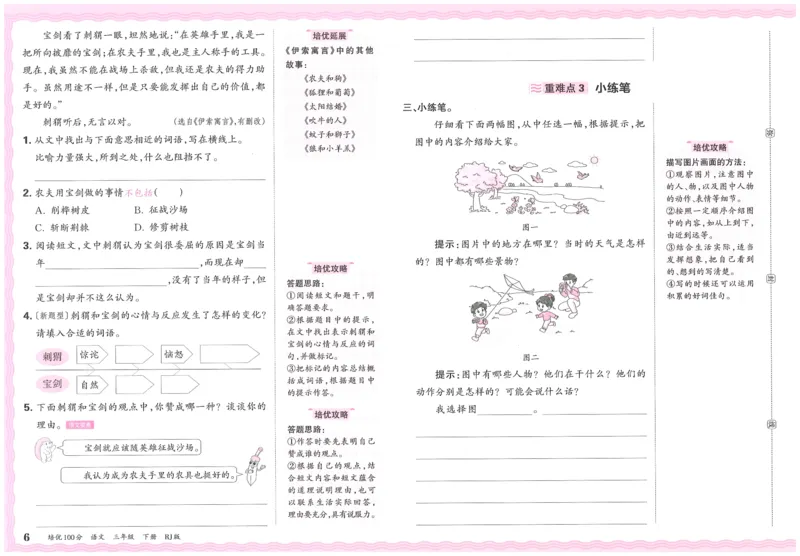 宝剑看了刺猬一眼,坦然地说:“在英雄手里,我是一
把所向披靡的宝剑;在农夫手里,我也是主人称手的工具。
现在,我虽然不能在战场上杀敌,但我还是农夫的得力助
手。虽然用途不一样,但是只要能发挥出自己的价值,都
是好的。”
刺猬听后,无言以对。 (选自《伊索寓言》,有删改)
1. 从文中找出与下面意思相近的词语,写在横线上。
比喻力量强大,所到之处,什么也阻挡不了。
2. 农夫用宝剑做的事情不包括( )
A. 削桦树皮 B. 征战沙场
C. 斩断荆棘 D. 修剪树枝
3. 阅读短文,文中刺猬认为宝剑很委屈的原因是宝剑当
年 ,而现在却
,没有了当年的样子,但
是宝剑却并不这么认为。
4. 〔新题型〕刺猬和宝剑的心情与反应发生了怎样的变化?
请填入合适的词语。
刺猬 惊诧 恼怒
宝剑 自然
5. 下面刺猬和宝剑的观点中,你赞成哪一种? 谈谈你的
理由。
宝剑就应该随英雄征战沙场。
我认为成为农夫手里的农具也挺好的。
6 培优100分 语文 三年级 下册 RJ版
培优延展
《伊索寓言》中的其他
故事:
《农夫和狗》
《狐狸和葡萄》
《太阳结婚》
《吹牛的人》
《蚊子和狮子》
《狼和小羊羔》
培优攻略
答题思路:
①阅读短文和题干,明
确答题要求。
②根据题目中的提示,
在文中找出表示刺猬和
宝剑的心情与反应的词
句,并做标记。
③把标记的内容总结概
括成词语,根据题目中
的提示作答。
培优攻略
答题思路:
①作答时要先表明自己
赞成谁的观点。
②根据自己的观点,结
合短文内容和短文蕴含
的道理说明理由,也可
以联系生活实际回答,
理由要充分,具有说服力。
重难点3 小练笔
三、小练笔。
仔细看下面两幅图,从中任选一幅,根据提示,把
图中的内容介绍给大家。
图一
提示:图片中的地方在哪里? 当时的天气是怎样
的? 图中都有哪些景物?
图二
提示:图中有哪些人物? 他们在干什么? 他们的
动作分别是怎样的? 可能会说什么话?
我选择图 。
培优攻略
描写图片画面的方法:
①观察图片,注意图中
的人、物,以及图中人物
的动作、表情等细节。
②按照一定顺序介绍图
中的内容,如从上到下,
由近到远等。
③结合生活实际,适当
发挥想象,把自己看到
的、想到的写清楚。
④写的时候还可以运用
积累的好词佳句。